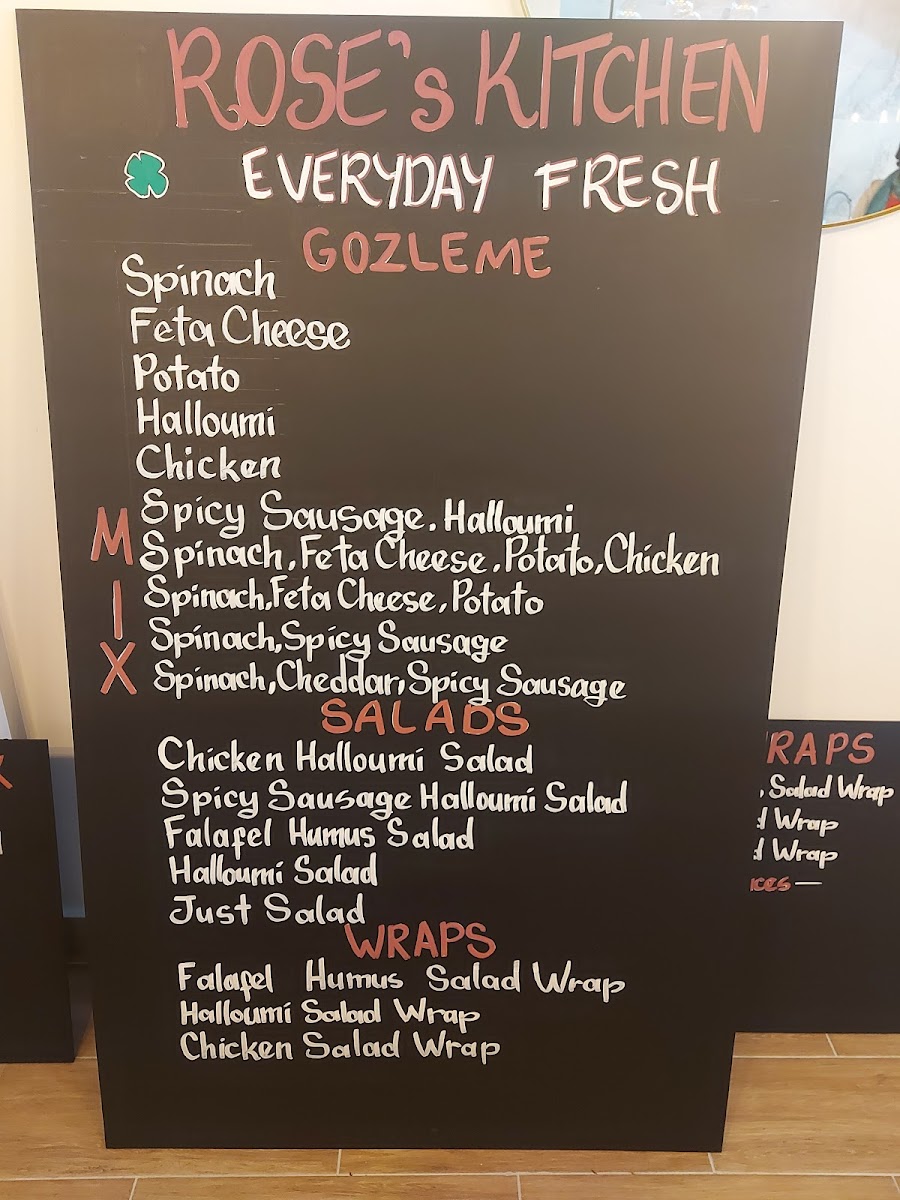 ROSE's KITCHEN
EVERYDAY FRESH
GOZLEME
Spinach
Feta Cheese
Potato
Halloumi
Chicken
MIX
Spicy Sausage. Halloumi
Spinach, Feta Cheese, Potato, Chicken
Spinach, Feta Cheese, Potato
Spinach, Spicy Sausage
Spinach, Cheddar, Spicy Sausage
SALADS
Chicken Halloumi Salad
Spicy Sausage Halloumi Salad
Falafel Humus Salad
Halloumi Salad
Just Salad
WRAPS
Falafel Humus Salad Wrap
Halloumi Salad Wrap
Chicken Salad Wrap
RAPS
Salad Wrap
d Wrap
d Wrap
ices